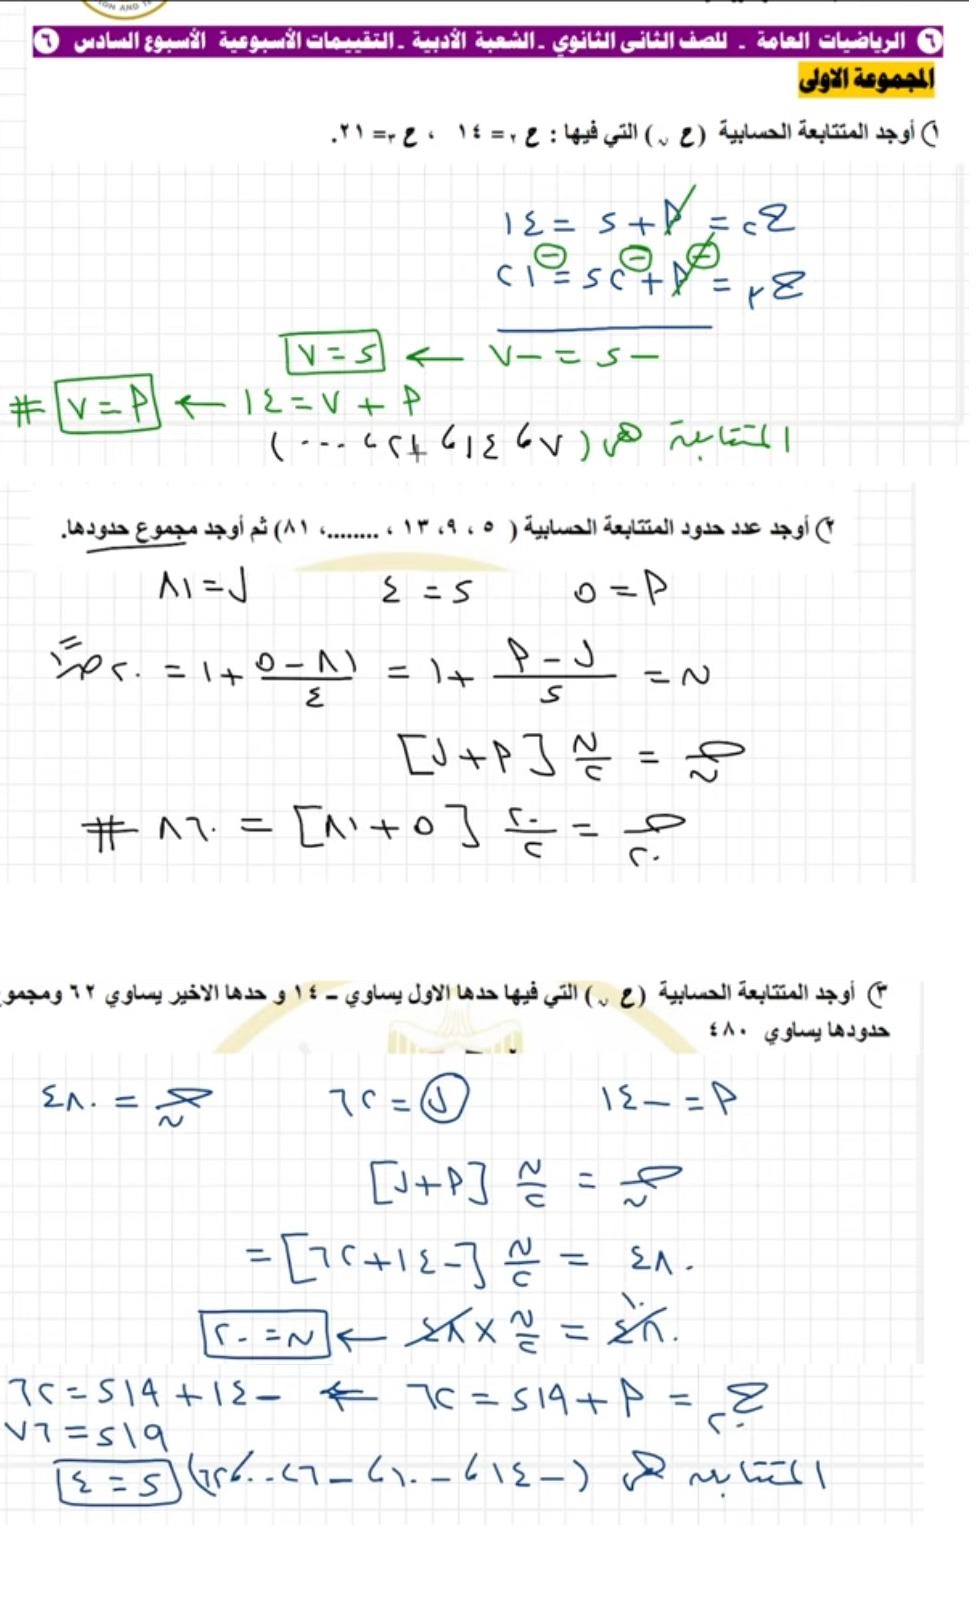 ٦ الرياضيات العامة ـ للصف الثانى الثانوي ـ الشعبة الأدبية ـ التقييمات الأسبوعية الأسبوع السادس ٦
المجموعة الاولى
١) أوجد المتتابعة الحسابية (ع ن) التي فيها : ع ٢ = ١٤ ، ع ٣ = ٢١.
ع٢ = م + د = ١٤
ع٣ = م + ٢د = ٢١
− د = −٧ ← د = ٧
م + ٧ = ١٤ ← م = ٧ #
المتتابعة هى (٧ ، ١٤ ، ٢١ ، ...)
٢) أوجد عدد حدود المتتابعة الحسابية ( ٥ ، ٩، ١٣ ، ........، ٨١) ثم أوجد مجموع حدودها.
م = ٥ د = ٤ ل = ٨١
ن = (ل − م)/د + ١ = (٨١ − ٥)/٤ + ١ = ٢٠
جـن = ن/٢ [م + ل]
جـ٢٠ = ٢٠/٢ [٥ + ٨١] = ٨٦٠ #
٣) أوجد المتتابعة الحسابية (ع ن) التي فيها حدها الاول يساوي – ١٤ و حدها الاخير يساوي ٦٢ ومجمو
حدودها يساوي ٤٨٠
م = −١٤ ل = ٦٢ جـن = ٤٨٠
جـن = ن/٢ [م + ل]
٤٨٠ = ن/٢ [−١٤ + ٦٢] =
٤٨٠ ١٠ = ن/٢ × ٤٨ ← ن = ٢٠
ع٢٠ = م + ١٩د = ٦٢ ← −١٤ + ١٩د = ٦٢
١٩د = ٧٦
المتتابعة هى (−١٤ ، −١٠ ، −٦ ، −٢ ، ... ، ٦٢) د = ٤